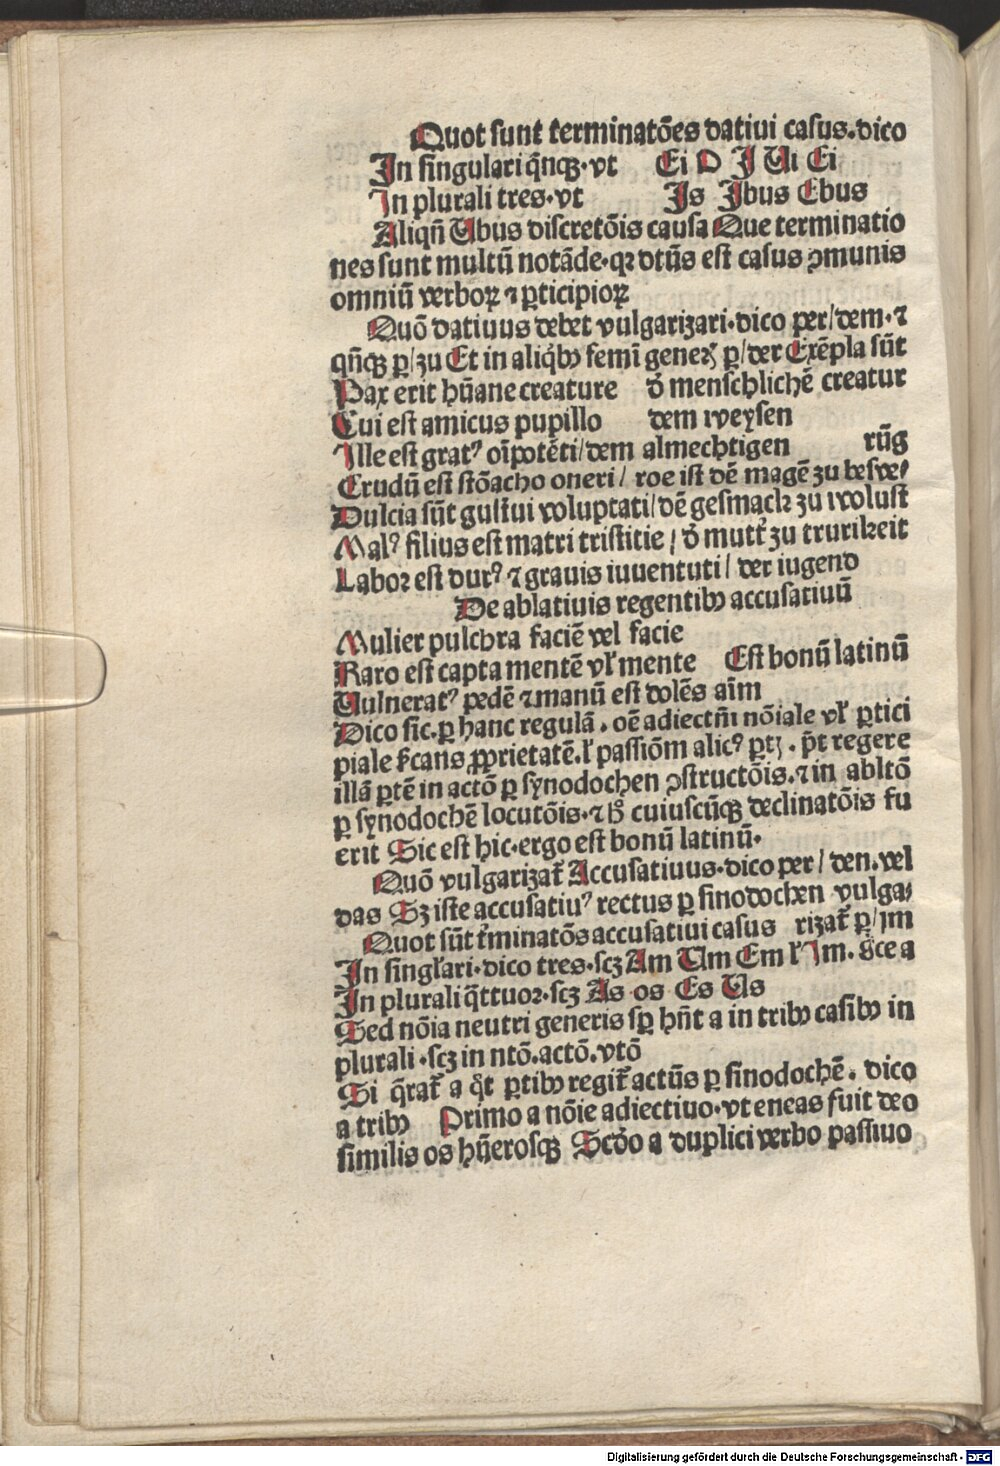 Quot sunt terminatões datiui casus.dico
In singulari q̃nqꝫ.vt Ei O I Ui Ei
In plurali tres.vt Is Ibus Ebus
Aliqñ Ubus discretõis causa Que terminatio
nes sunt multũ notãde.qꝛ dtũs est casus ꝯmunis
omniũ verboꝝ ⁊ ꝑticipioꝝ
Quõ datiuus debet vulgarizari.dico per/dem.⁊
qñcqꝫ ꝑ/zu Et in aliq̇bꝰ femĩ generꝭ ꝑ/der Exẽpla sũt
Pax erit hũane creature ď menschlichẽ creatur
Cui est amicus pupillo dem weysen
Ille est gratꝰ oĩpotẽti/dem almechtigen rũg
Crudũ est stõacho oneri/ roe ist dẽ magẽ zu beswe/
Dulcia sũt gustui voluptati/dẽ gesmack zu wolust
Malꝰ filius est matri tristitie/ď mutt̃ zu trurikeit
Labor est durꝰ ⁊ grauis iuuentuti/ der iugend
De ablatiuis regentibꝰ accusatiuũ
Mulier pulchra faciẽ vel facie
Raro est capta mentẽ vł mente Est bonũ latinũ
Uulneratꝰ pedẽ ⁊ manũ est dolẽs aĩm
Dico sic.ꝑ hanc regulã.oẽ adiectm̃ nõiale vł ꝑtici
piale ſ̃cans ꝓprietatẽ.ł passiõm alicꝰ ꝑtꝭ.p̃t regere
illã ꝑtẽ in actõ ꝑ synodochen ꝯstructõis.⁊ in abltõ
ꝑ synodochẽ locutõis.⁊ hꝰ cuiuscũqꝫ declinatõis fu
erit Sic est hic.ergo est bonũ latinũ.
Quõ vulgarizat̃ Accusatiuus.dico per/den.vel
das Sꝫ iste accusatiuꝰ rectus ꝑ sinodochen vulga/
Quot sũt t̃minatõs accusatiui casus rizat̃ ꝑ/im
In singłari.dico tres.scꝫ Am Um Em ł Im.Sc̃e a
In plurali q̃ttuor.scꝫ As os Es Us
Sed nõia neutri generis sꝑ hñt a in tribꝰ casibꝰ in
plurali.scꝫ in ntõ.actõ.vtõ
Si q̃rat̃ a q̊t ꝑtibꝰ regit̃ actũs ꝑ sinodochẽ. dico
a tribꝰ Primo a nõie adiectiuo.vt eneas fuit deo
similis os hũerosqꝫ Scďo a duplici verbo passiuo
Digitalisierung gefördert durch die Deutsche Forschungsgemeinschaft - DFG